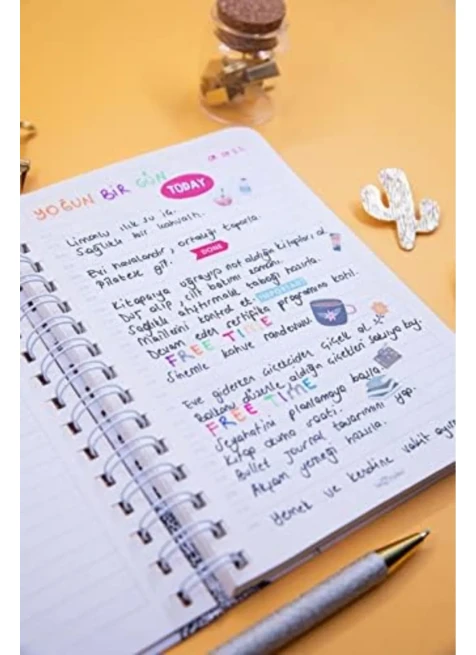 YOĞUN BİR GÜN
TODAY
Limonlu ılık su iç.
Sağlıklı bir kahvaltı.
Evi havalandır, ortalığı toparla.
Pilatese git. DONE
Kitapçıya uğrayıp not aldığın kitapları al
Duş alıp, cilt bakımı zamanı.
Sağlıklı atıştırmalık tabağı hazırla.
Mailleri kontrol et. IMPORTANT
Devam eden sertifika programına katıl.
FREE TIME
Sinemle kahve randevusu
Eve giderken çiçekçiden çiçek al.
Balkonu düzenle, aldığın çiçekleri saksıya
FREE TIME
Seyahatini planlamaya başla.
Kitap okuma saati.
Bullet Journal tasarımını yap.
Akşam yemeği hazırla.
Yemek ve kendine vakit